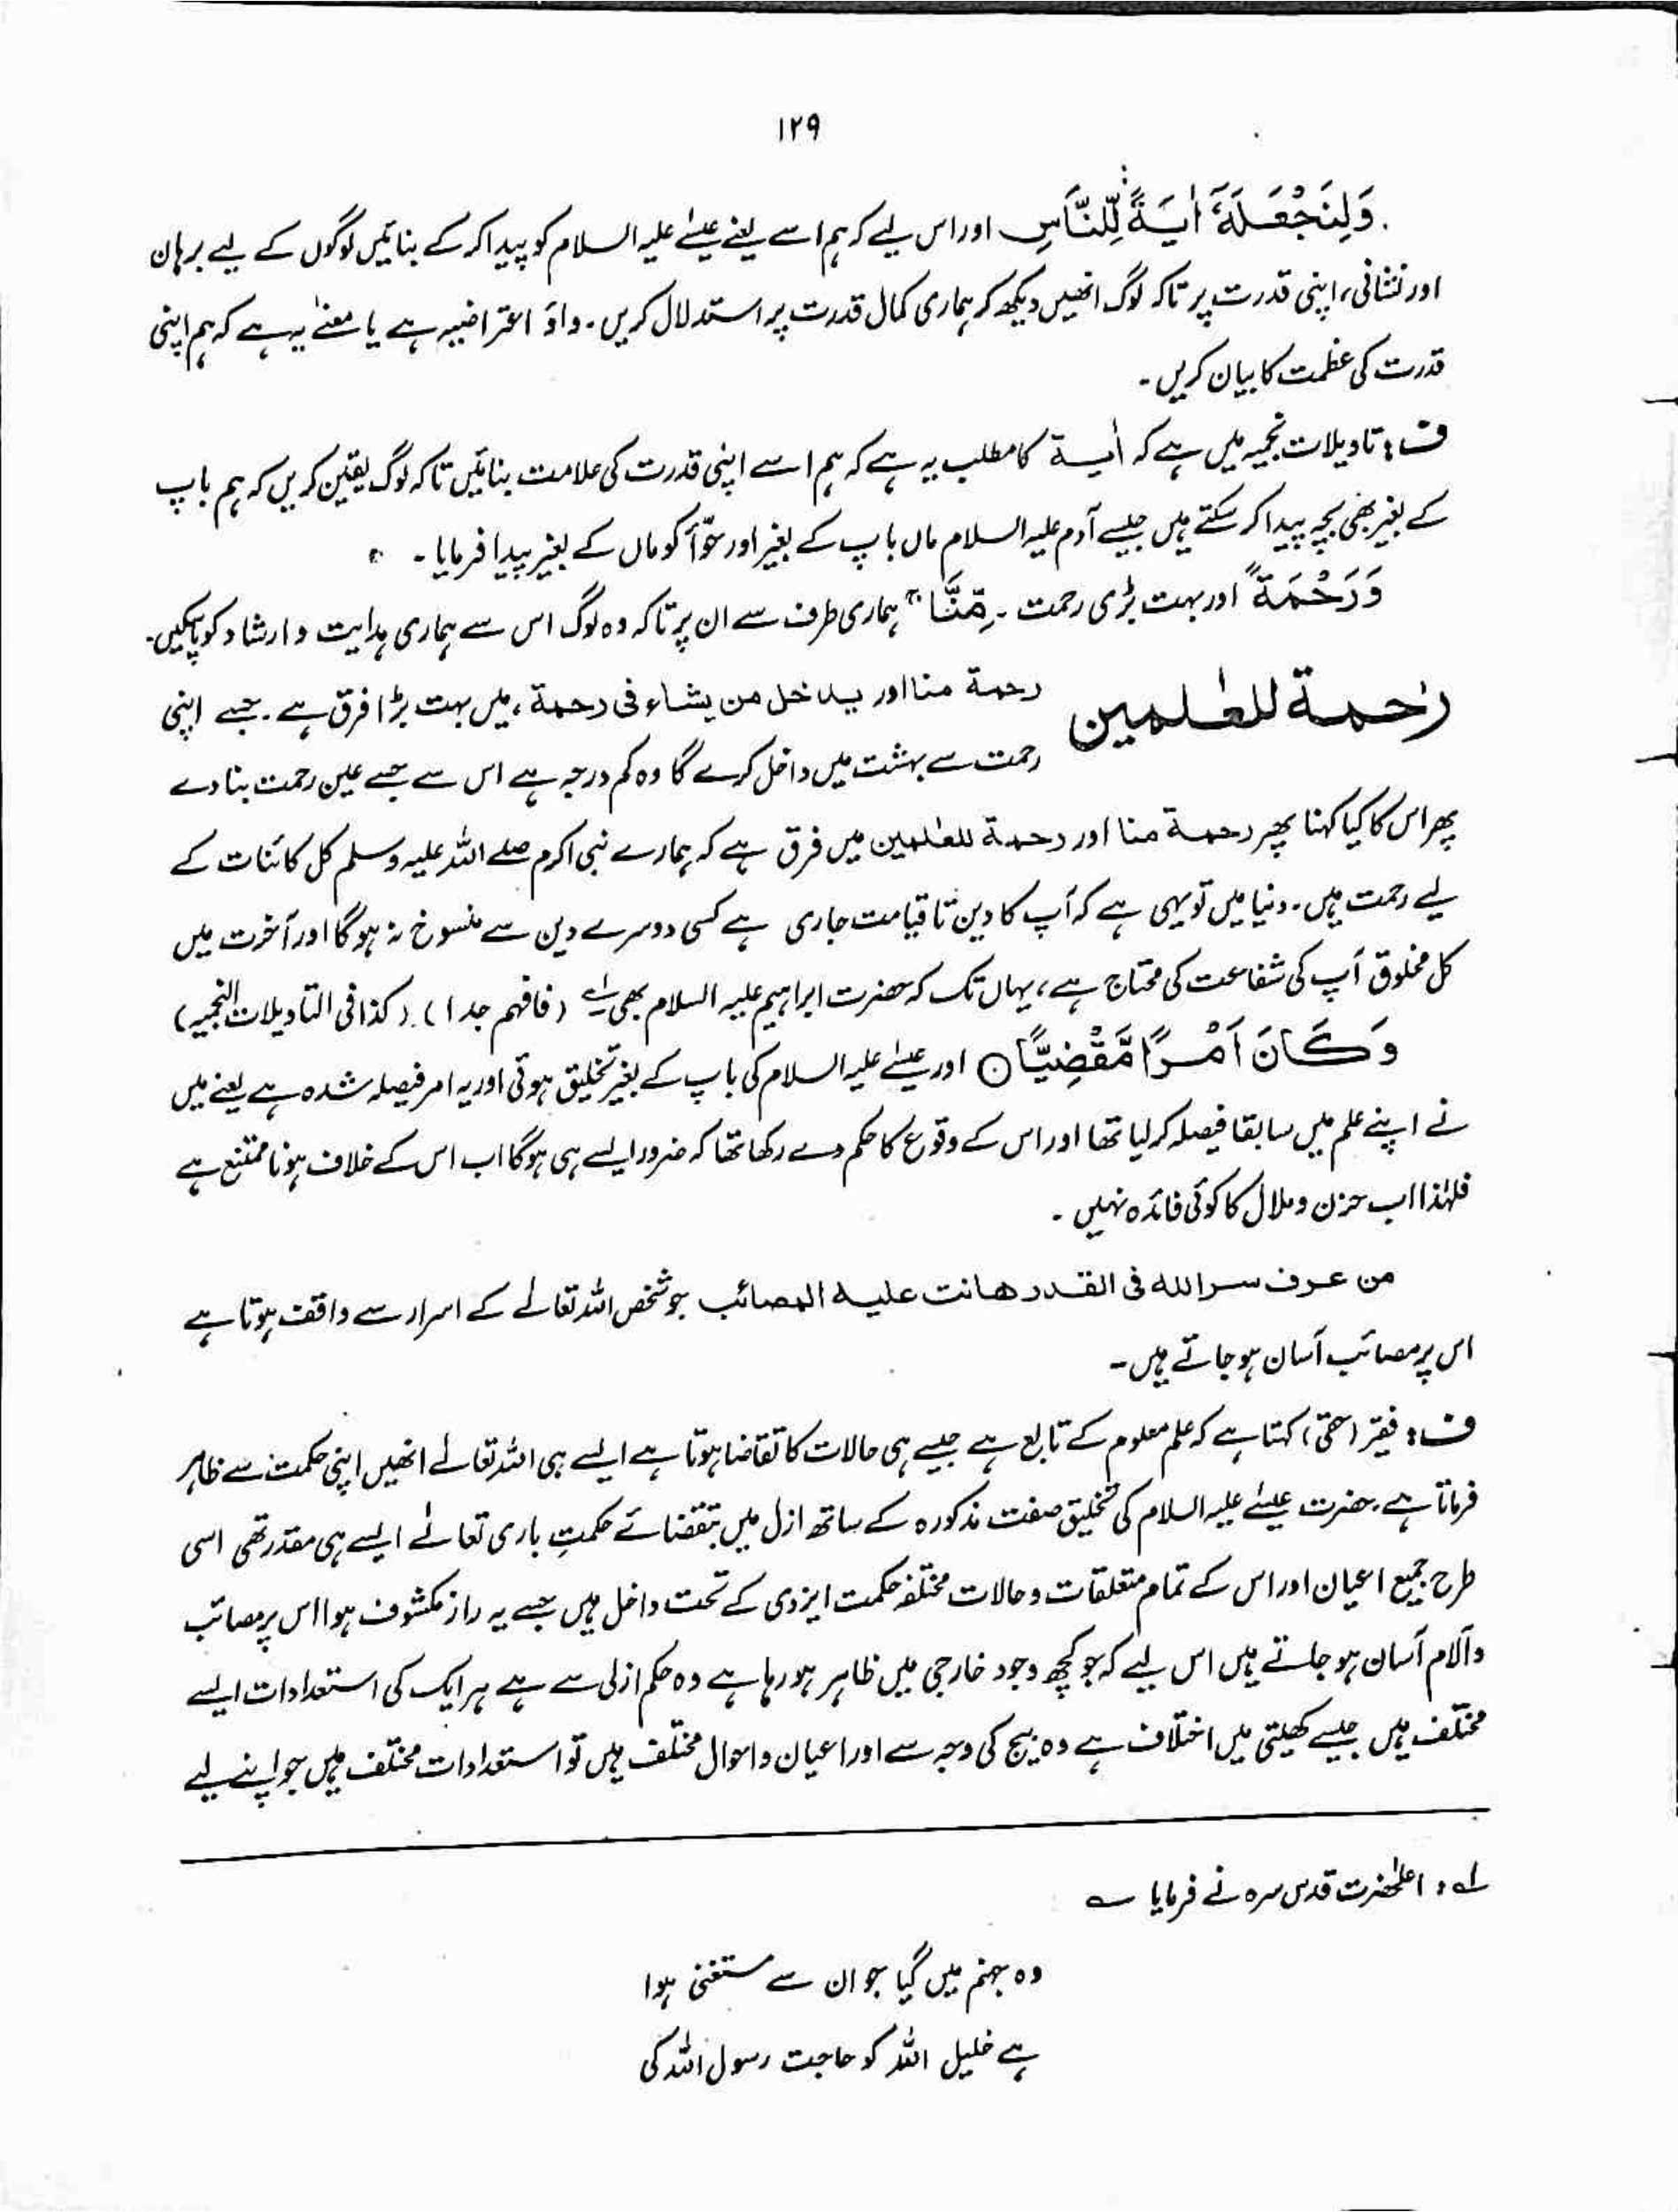 ۱۲۹
وَلِنَجْعَلَهٗۤ اٰیَةً لِّلنَّاسِ اور اس لیے کہ ہم اسے یعنے عیسےٰ علیہ السلام کو پیدا کر کے بنائیں لوگوں کے لیے برہان
اور نشانی، اپنی قدرت پر تاکہ لوگ انھیں دیکھ کر ہماری کمال قدرت پر استدلال کریں۔ واؤ اعتراضیہ ہے یا معنےٰ یہ ہے کہ ہم اپنی
قدرت کی عظمت کا بیان کریں۔
ف : تاویلات نجمیہ میں ہے کہ اٰیۃ کا مطلب یہ ہے کہ ہم اسے اپنی قدرت کی علامت بنائیں تاکہ لوگ یقین کریں کہ ہم باپ
کے بغیر بھی بچہ پیدا کر سکتے ہیں جیسے آدم علیہ السلام ماں باپ کے بغیر اور حوّا کو ماں کے بغیر پیدا فرمایا۔
وَرَحْمَةً اور بہت بڑی رحمت ۔ مِّنَّا ۚ ہماری طرف سے ان پر تاکہ وہ لوگ اس سے ہماری ہدایت و ارشاد کو پاسکیں۔
رحمۃ للعٰلمین
رحمۃ منا اور یدخل من یشاء فی رحمۃ، میں بہت بڑا فرق ہے۔ جسے اپنی
رحمت سے بہشت میں داخل کرے گا وہ کم درجہ ہے اس سے جسے عین رحمت بنا دے
پھر اس کا کیا کہنا پھر رحمۃ منا اور رحمۃ للعٰلمین میں فرق ہے کہ ہمارے نبی اکرم صلے اللہ علیہ وسلم کل کائنات کے
لیے رحمت ہیں۔ دنیا میں تو یہی ہے کہ آپ کا دین تا قیامت جاری ہے کسی دوسرے دین سے منسوخ نہ ہوگا اور آخرت میں
کل مخلوق آپ کی شفاعت کی محتاج ہے، یہاں تک کہ حضرت ابراہیم علیہ السلام بھی لہ (فافہم جدا)۔ (کذا فی التاویلات النجمیہ)
وَكَانَ اَمْرًا مَّقْضِیًّا ○ اور عیسےٰ علیہ السلام کی باپ کے بغیر تخلیق ہوئی اور یہ امر فیصلہ شدہ ہے یعنے میں
نے اپنے علم میں سابقا فیصلہ کر لیا تھا اور اس کے وقوع کا حکم دے رکھا تھا کہ ضرور ایسے ہی ہوگا اب اس کے خلاف ہونا ممتنع ہے
فلہٰذا اب حزن و ملال کا کوئی فائدہ نہیں ۔
من عرف سر اللہ فی القدر ھانت علیہ المصائب جو شخص اللہ تعالےٰ کے اسرار سے واقف ہوتا ہے
اس پر مصائب آسان ہو جاتے ہیں۔
ف : فقیر (حقی) کہتا ہے کہ علم معلوم کے تابع ہے جیسے ہی حالات کا تقاضا ہوتا ہے ایسے ہی اللہ تعالےٰ انھیں اپنی حکمت سے ظاہر
فرماتا ہے۔ حضرت عیسےٰ علیہ السلام کی تخلیق صفت مذکورہ کے ساتھ ازل میں بتقضائے حکمتِ باری تعالےٰ ایسے ہی مقدر تھی اسی
طرح جمیع اعیان اور اس کے تمام متعلقات و حالات مختلفہ حکمت ایزدی کے تحت داخل ہیں جسے یہ راز مکشوف ہوا اس پر مصائب
و آلام آسان ہو جاتے ہیں اس لیے کہ جو کچھ وجود خارجی میں ظاہر ہو رہا ہے وہ حکم ازلی سے ہے ہر ایک کی استعدادات ایسے
مختلف ہیں جیسے کھیتی میں اختلاف ہے وہ بیج کی وجہ سے اور اعیان و احوال مختلف ہیں تو استعدادات مختلف ہیں جو اپنے لیے
لہ : اعلٰحضرت قدس سرہ نے فرمایا ؎
وہ جہنم میں گیا جو ان سے مستغنی ہوا
ہے خلیل اللہ کو حاجت رسول اللہ کی